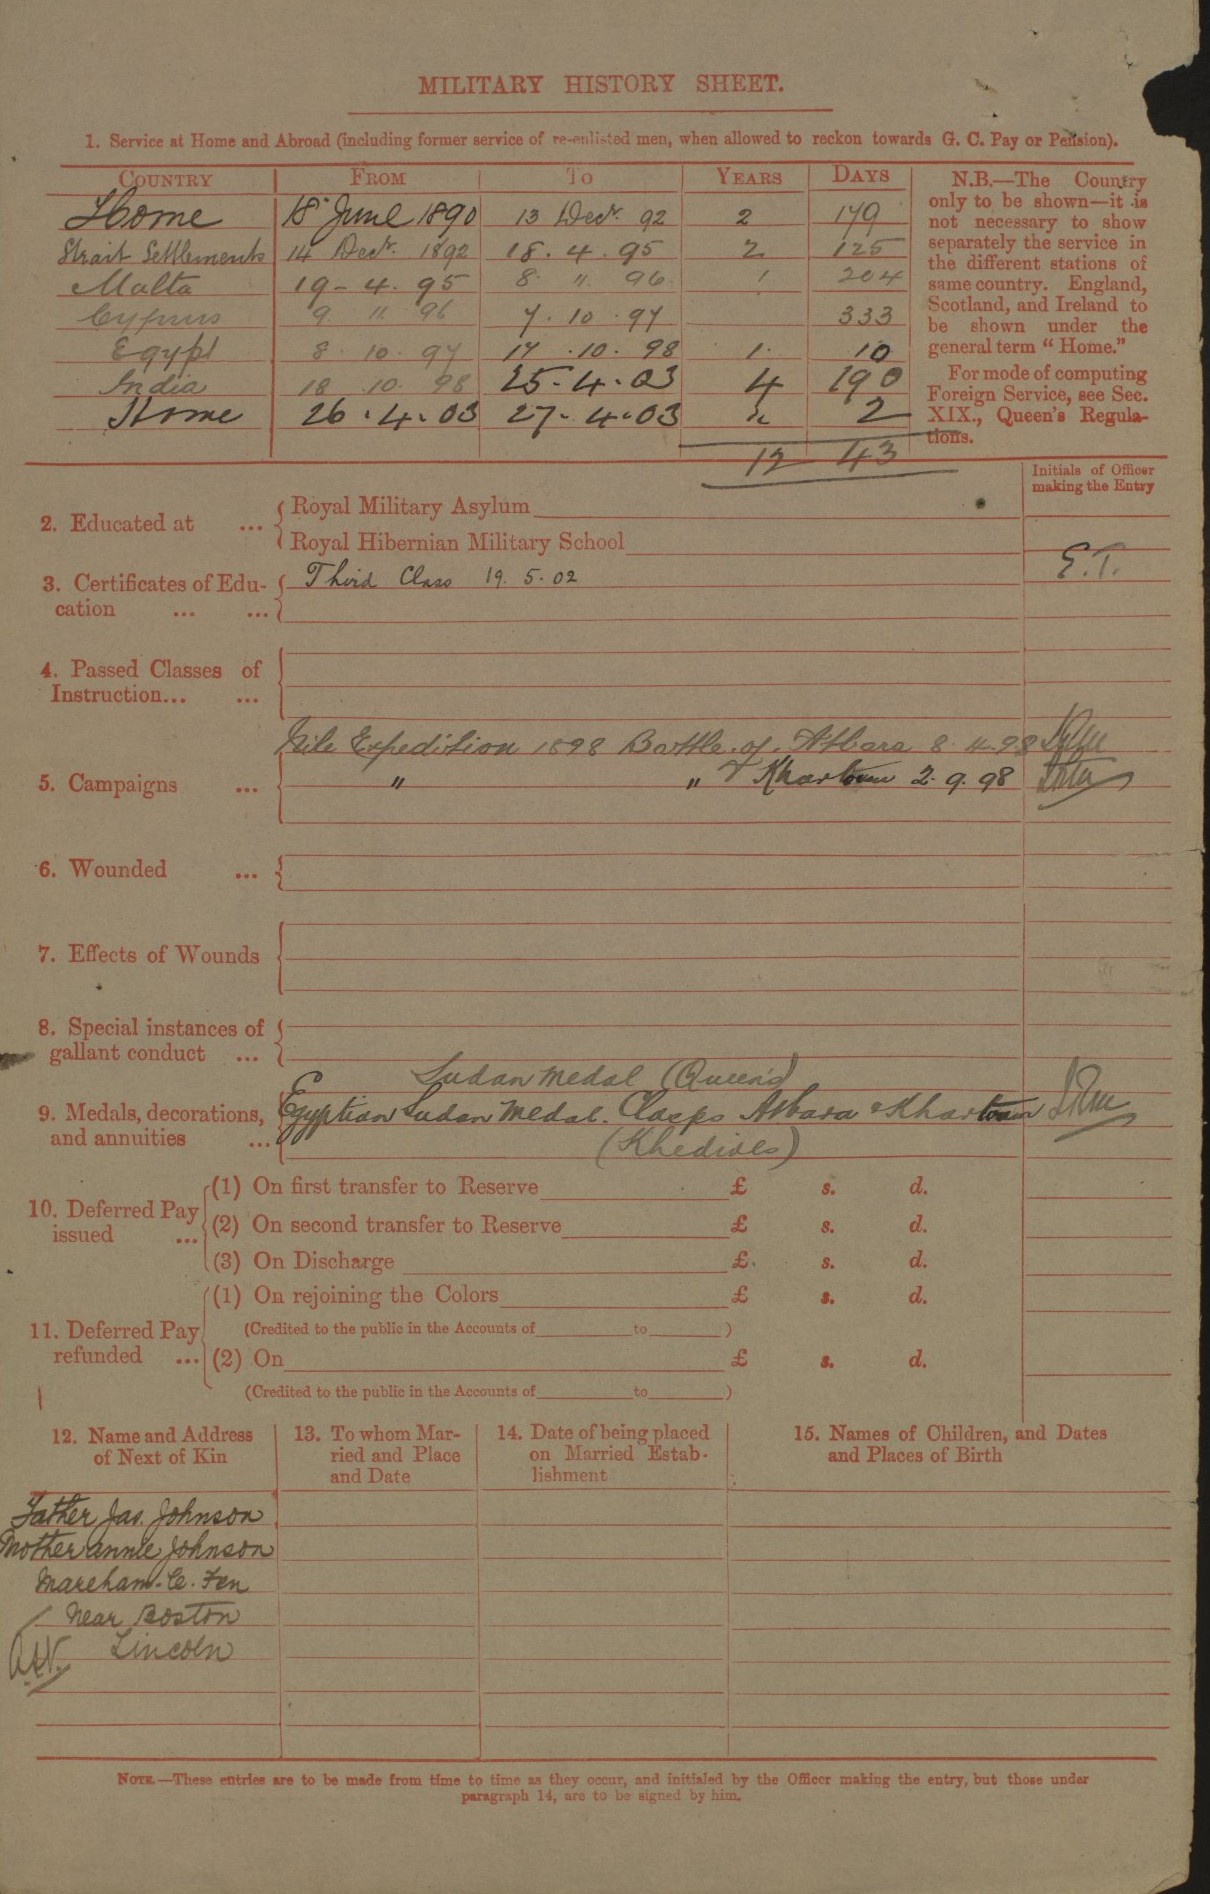 MILITARY HISTORY SHEET.
1. Service at Home and Abroad (including former service of re-enlisted men, when allowed to reckon towards G. C. Pay or Pension).
COUNTRY FROM TO YEARS DAYS
Home 18 June 1890 13 Decr. 92 2 179
Strait Settlements 14 Decr. 1892 18. 4. 95 2 125
Malta 19 - 4. 95 8. 11. 96 1 204
Cyprus 9. 11. 96 7. 10. 97 333
Egypt 8. 10. 97 17. 10. 98 1. 10
India 18 10. 98 25. 4. 03 4 190
Home 26. 4. 03 27. 4. 03 2
12 43
N.B.—The Country
only to be shown—it is
not necessary to show
separately the service in
the different stations of
same country. England,
Scotland, and Ireland to
be shown under the
general term “Home.”
For mode of computing
Foreign Service, see Sec.
XIX., Queen's Regula-
tions.
Initials of Officer
making the Entry
2. Educated at ... Royal Military Asylum
Royal Hibernian Military School
3. Certificates of Edu-
cation ... ... Third Class 19. 5. 02 E.T.
4. Passed Classes of
Instruction... ...
Nile Expedition 1898 Battle of Atbara 8. 4. 98
5. Campaigns ... " " Khartoum 2. 9. 98
6. Wounded ...
7. Effects of Wounds
8. Special instances of
gallant conduct ...
Sudan Medal (Queen's)
9. Medals, decorations,
and annuities ... Egyptian Sudan Medal. Clasps Atbara & Khartoum
(Khedives)
10. Deferred Pay
issued ...
(1) On first transfer to Reserve £ s. d.
(2) On second transfer to Reserve £ s. d.
(3) On Discharge £ s. d.
11. Deferred Pay
refunded ...
(1) On rejoining the Colors £ s. d.
(Credited to the public in the Accounts of to )
(2) On £ s. d.
(Credited to the public in the Accounts of to )
12. Name and Address
of Next of Kin
13. To whom Mar-
ried and Place
and Date
14. Date of being placed
on Married Estab-
lishment
15. Names of Children, and Dates
and Places of Birth
Father Jas. Johnson
Mother Annie Johnson
Mareham-le-Fen
Near Boston
Lincoln
NOTE.—These entries are to be made from time to time as they occur, and initialed by the Officer making the entry, but those under
paragraph 14, are to be signed by him.